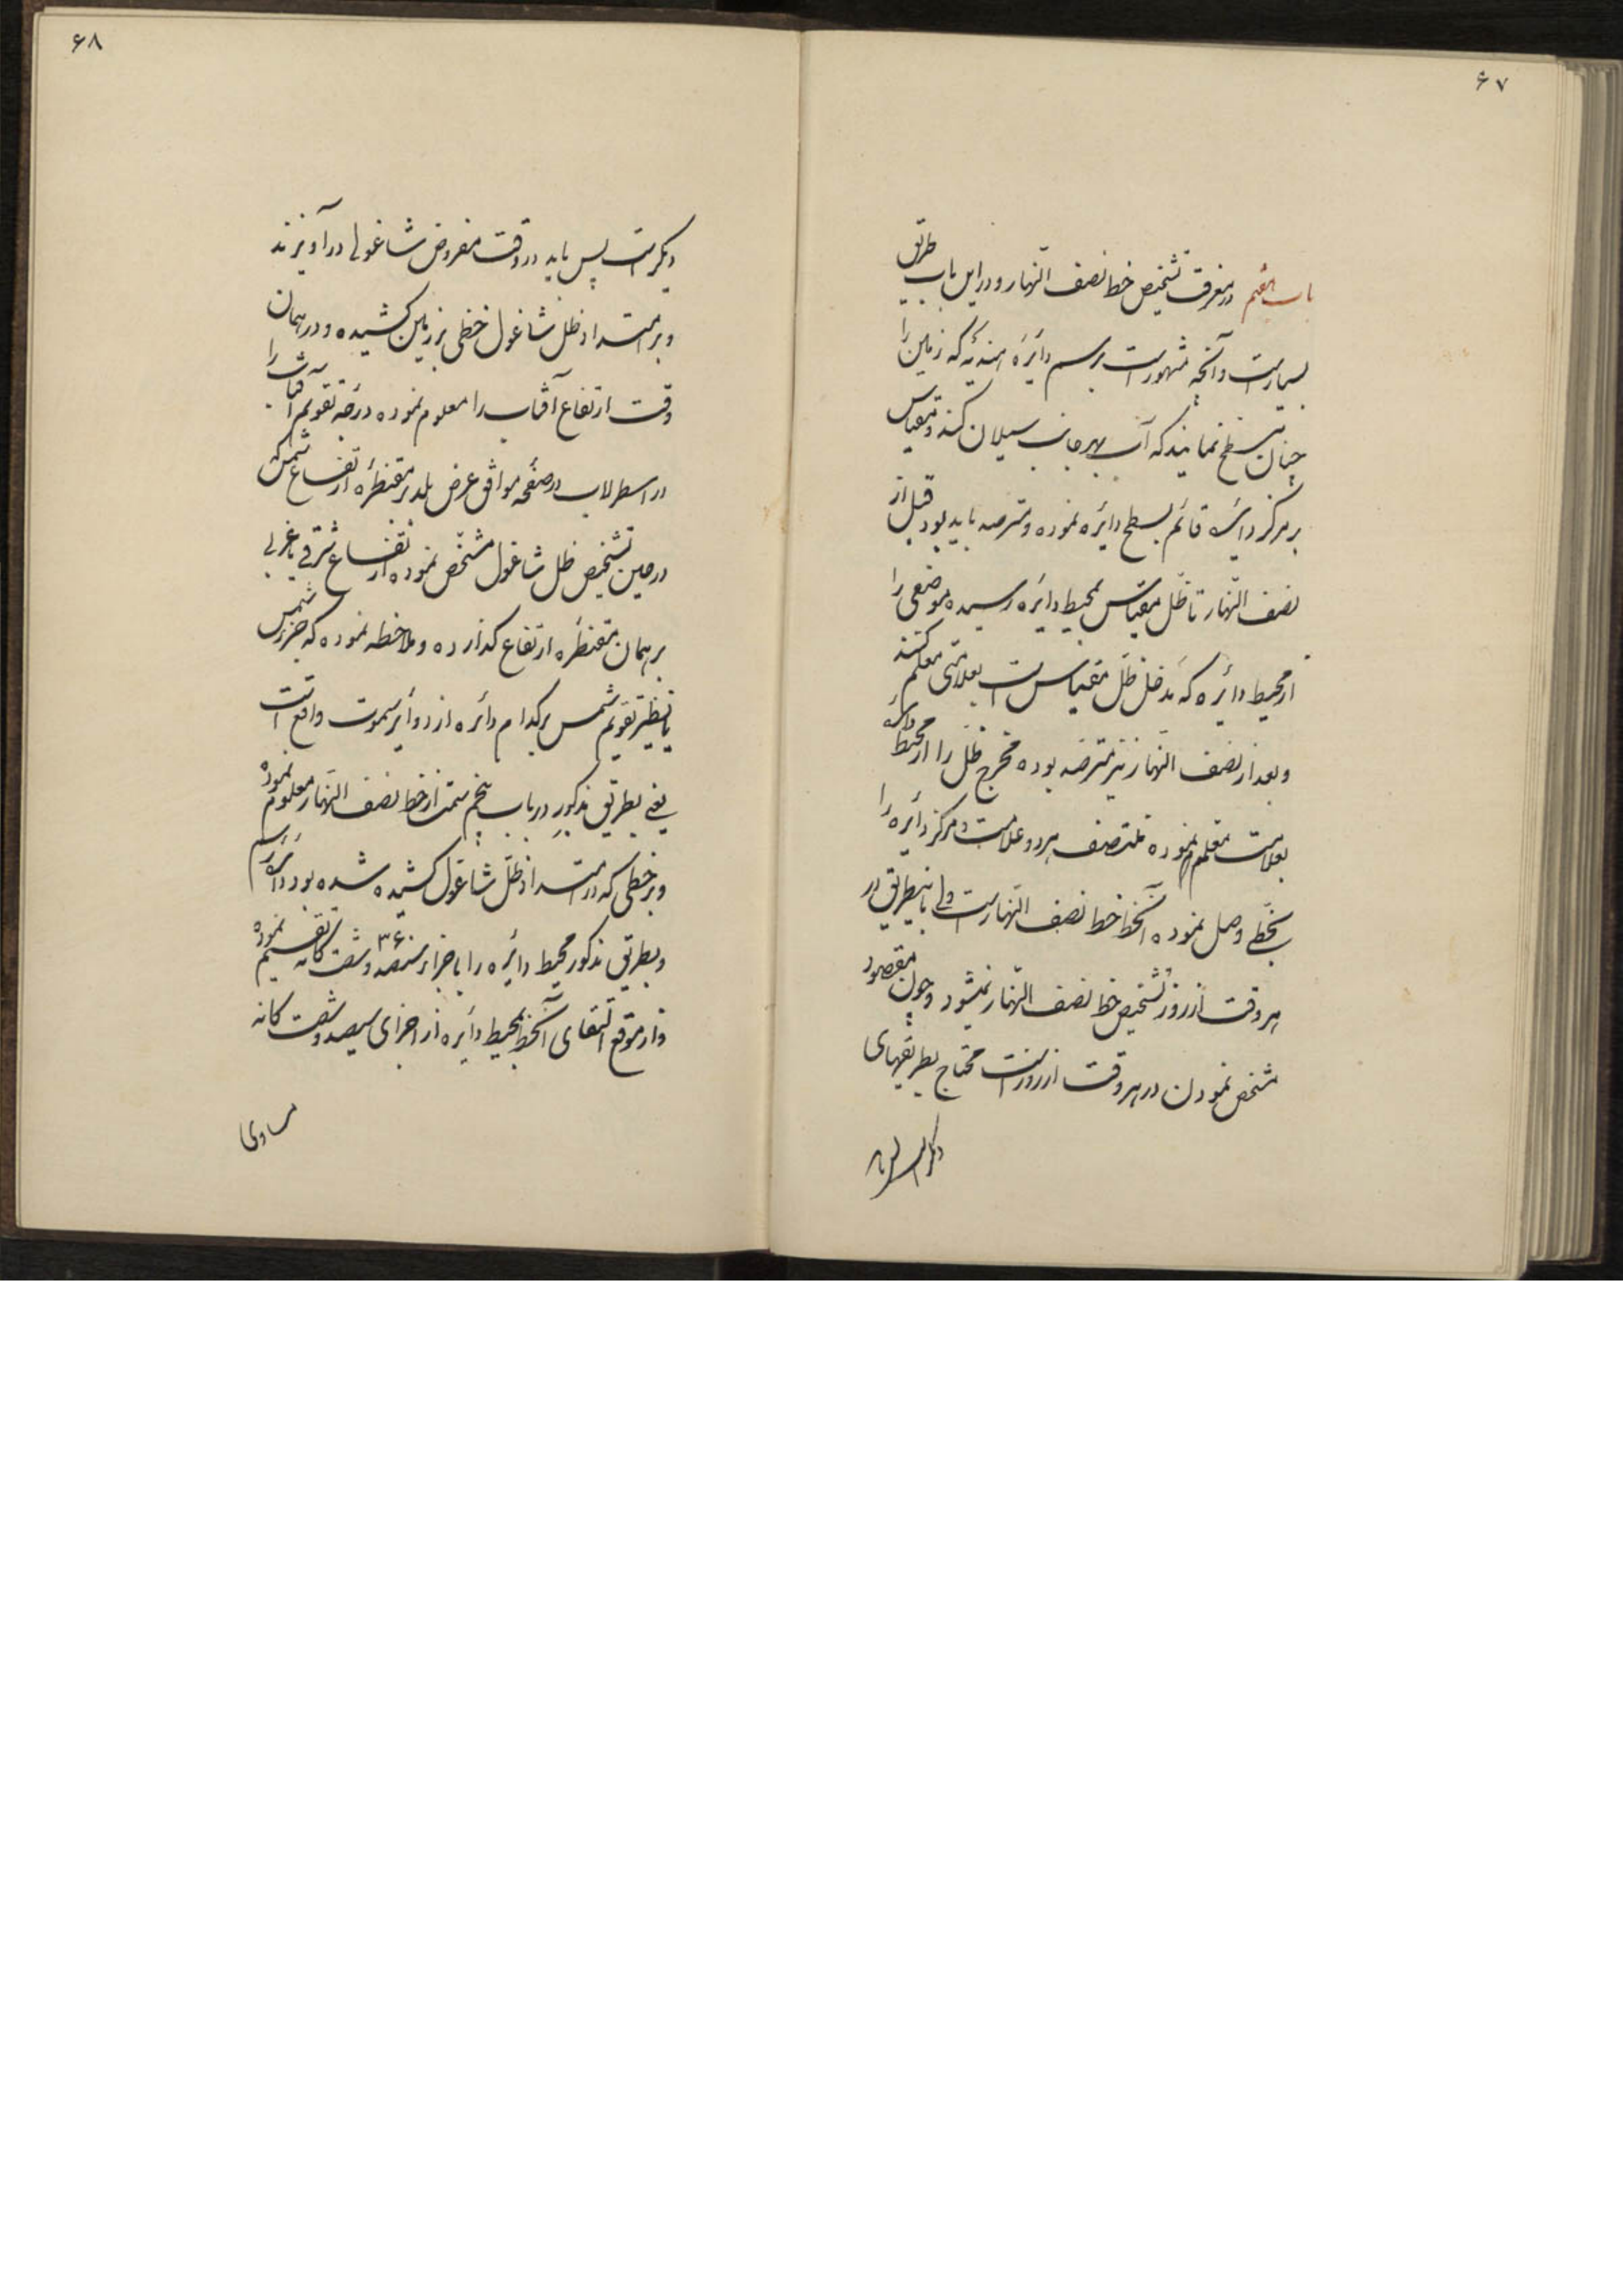 ۶۷
باب هفتم در معرفت تشخیص خط نصف النّهار و در این باب طریق
بسیارست و آنچه مشهورست برسم دایرهٔ هندیّه که زمین را
چنان مسطّح نمایند که آب بهر جانب سیلان کند و مقیاس
بر مرکز دایره قائم بسطح دایره نموده و مترصد باید بود قبل از
نصف النّهار تا ظلّ مقیاس بمحیط دایره رسیده موضعی را
از محیط دایره که مدخل ظلّ مقیاس است بعلامتی معلّم کنند
و بعد از نصف النّهار نیز مترصّد بوده مخرج ظلّ را از محیط دائره
بعلامت معلّم نموده منتصف هر دو علامت و مرکز دائره را
بخطّی وصل نموده آنخط خط نصف النّهارست ولی باینطریق در
هر وقت از روز تشخیص خط نصف النّهار نمیشود و چون مقصود
مشخص نمودن در هر وقت از روزست محتاج بطریقهای
دیگر است پس باید
۶۸
دیگر است پس باید در وقت مفروض شاغولی درآویزند
و بر امتداد ظل شاغول خطی بر زمین کشیده و در همان
وقت ارتفاع آفتاب را معلوم نموده درجهٔ تقویم آفتاب را
در اسطرلاب در صفحهٔ موافق عرض بلد بر مقنطرهٔ ارتفاع شمس که
در حین تشخیص ظل شاغول مشخّص نموده ارتفاع شرقی یا غربی
بر همان مقنطره ارتفاع گذارده و ملاحظه نموده که جزء شمس
یا نظیر تقویم شمس بر کدام دائره از دوائر سموت واقع است
یعنی بطریق مذکور در باب پنجم سمت از خط نصف النّهار معلوم نموده
و بر خطی که در امتداد ظلّ شاغول کشیده شده بود دائره رسم
و بطریق مذکور محیط دائره را باجزاء سیصد و شصت ۳۶۰ گانه تقسیم نموده
و از موقع التقای آنخط بمحیط دایره از اجزای سیصد و شصت گانه
مساوی